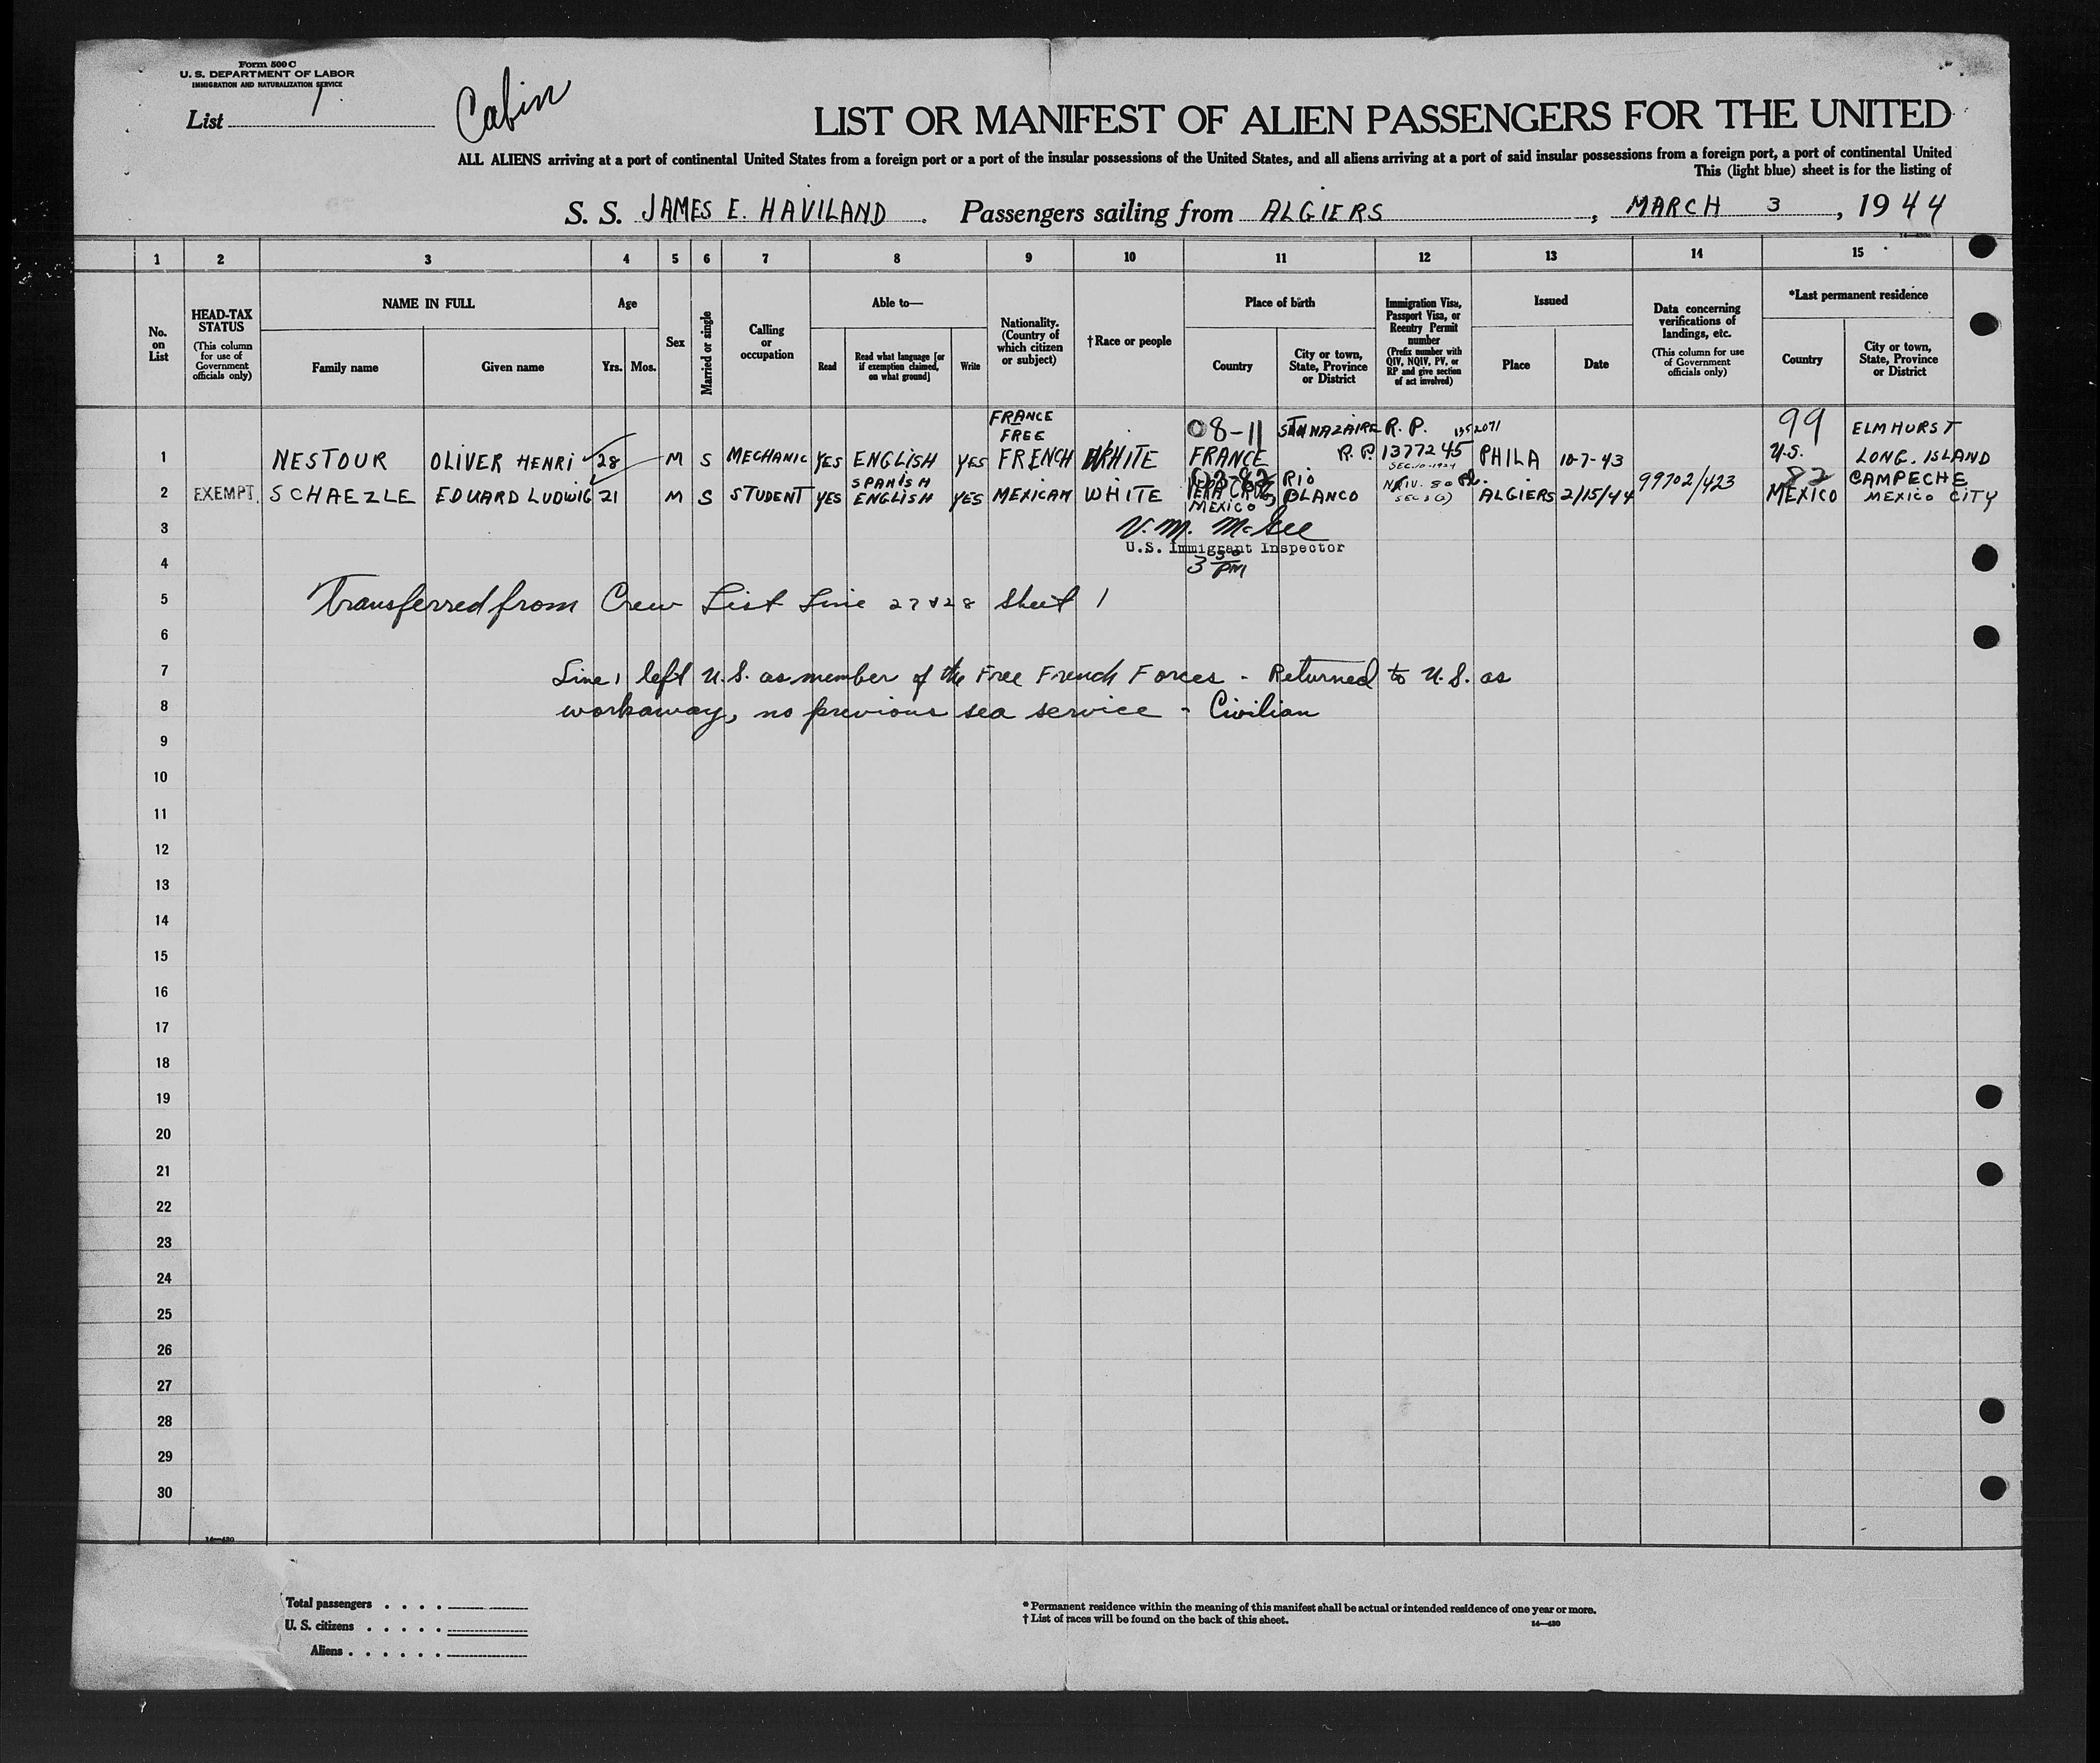 Form 500 C
U. S. DEPARTMENT OF LABOR
IMMIGRATION AND NATURALIZATION SERVICE
List 1
Cabin
LIST OR MANIFEST OF ALIEN PASSENGERS FOR THE UNITED
ALL ALIENS arriving at a port of continental United States from a foreign port or a port of the insular possessions of the United States, and all aliens arriving at a port of said insular possessions from a foreign port, a port of continental United
This (light blue) sheet is for the listing of
S. S. JAMES E. HAVILAND. Passengers sailing from ALGIERS, MARCH 3, 1944
1 2 3 4 5 6 7 8 9 10 11 12 13 14 15
No. on List
HEAD-TAX STATUS (This column for use of Government officials only)
NAME IN FULL
Family name Given name
Age
Yrs. Mos.
Sex
Married or single
Calling or occupation
Able to—
Read Read what language [or if exemption claimed, on what ground] Write
Nationality. (Country of which citizen or subject)
†Race or people
Place of birth
Country City or town, State, Province or District
Immigration Visa, Passport Visa, or Reentry Permit number (Prefix number with QIV, NQIV, PV, or RP and give section of act involved)
Issued
Place Date
Data concerning verifications of landings, etc. (This column for use of Government officials only)
*Last permanent residence
Country City or town, State, Province or District
FRANCE 08-11 ST NAZAIRE R. P. 1352071 99 ELMHURST
FREE
1 NESTOUR OLIVER HENRI 28 M S MECHANIC YES ENGLISH YES FRENCH WHITE FRANCE R.P. 1377245 PHILA 10-7-43 U.S. LONG. ISLAND
SEC.10-1924
SPANISH RIO 82 CAMPECHE
2 EXEMPT. SCHAEZLE EDUARD LUDWIG 21 M S STUDENT YES ENGLISH YES MEXICAN WHITE VERA CRUZ BLANCO ALGIERS 2/15/44 99702/423 MEXICO MEXICO CITY
MEXICO
3 V. M. McGee
U.S. Immigrant Inspector
4 3 30 PM
5 Transferred from Crew List Line 27 & 28 Sheet 1
6
7 Line 1 left U.S. as member of the Free French Forces - Returned to U.S. as
8 workaway, no previous sea service - Civilian
9
10
11
12
13
14
15
16
17
18
19
20
21
22
23
24
25
26
27
28
29
30
Total passengers
U. S. citizens
Aliens
* Permanent residence within the meaning of this manifest shall be actual or intended residence of one year or more.
† List of races will be found on the back of this sheet.